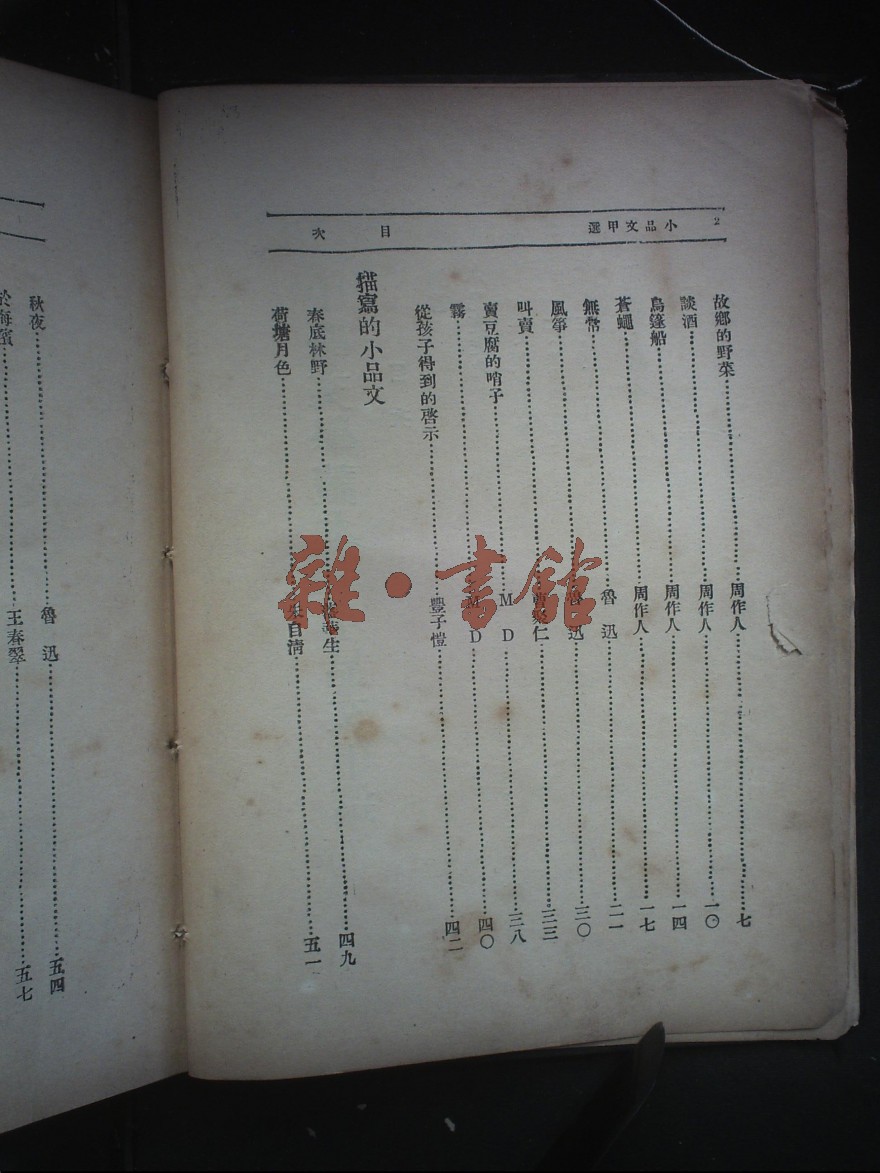 2 小品文甲選 目次
故鄉的野菜……周作人……七
談酒……周作人……一〇
烏篷船……周作人……一四
蒼蠅……周作人……一七
無常……魯迅……二一
風箏……魯迅……三〇
叫賣……曹聚仁……三三
賣豆腐的哨子……M D……三八
霧……M D……四〇
從孩子得到的啓示……豐子愷……四二
描寫的小品文
春底林野……華生……四九
荷塘月色……朱自清……五一
秋夜……魯迅……五四
於海濱……王春翠……五七
雜·書館